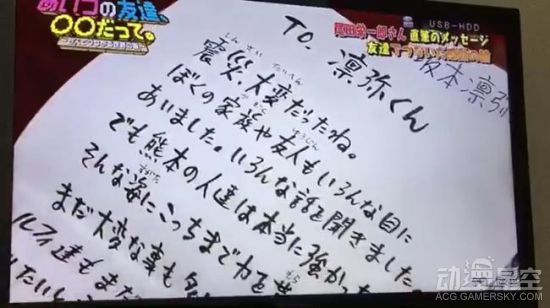 あいつの友達、
〇〇だって。
USB-HDD
尾田栄一郎さん 直筆のメッセージ
坂本凛弥
TO. 凛弥くん
しんさい たいへん
震災、大変だったね。
ぼくの家族や友人もいろんな目に
あいました。いろんな話を聞きました
でも熊本の人達は本当に強かった
そんな姿にこっちまで力を
まだ大変な事も
ルフィ達もまだ
动漫星空
ACG.GAMERSKY.COM